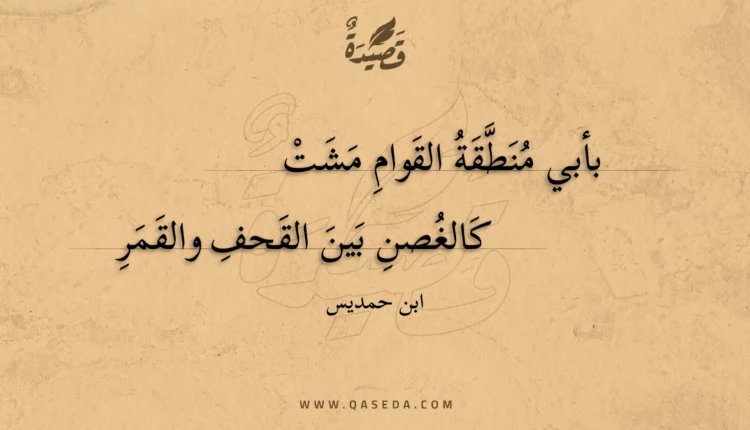 قَصِيْدَةٌ
بأبي مُنَطَّقَةُ القَوامِ مَشَتْ
كَالغُصنِ بَينَ القَحفِ والقَمَرِ
ابن حمديس
WWW.QASEDA.COM